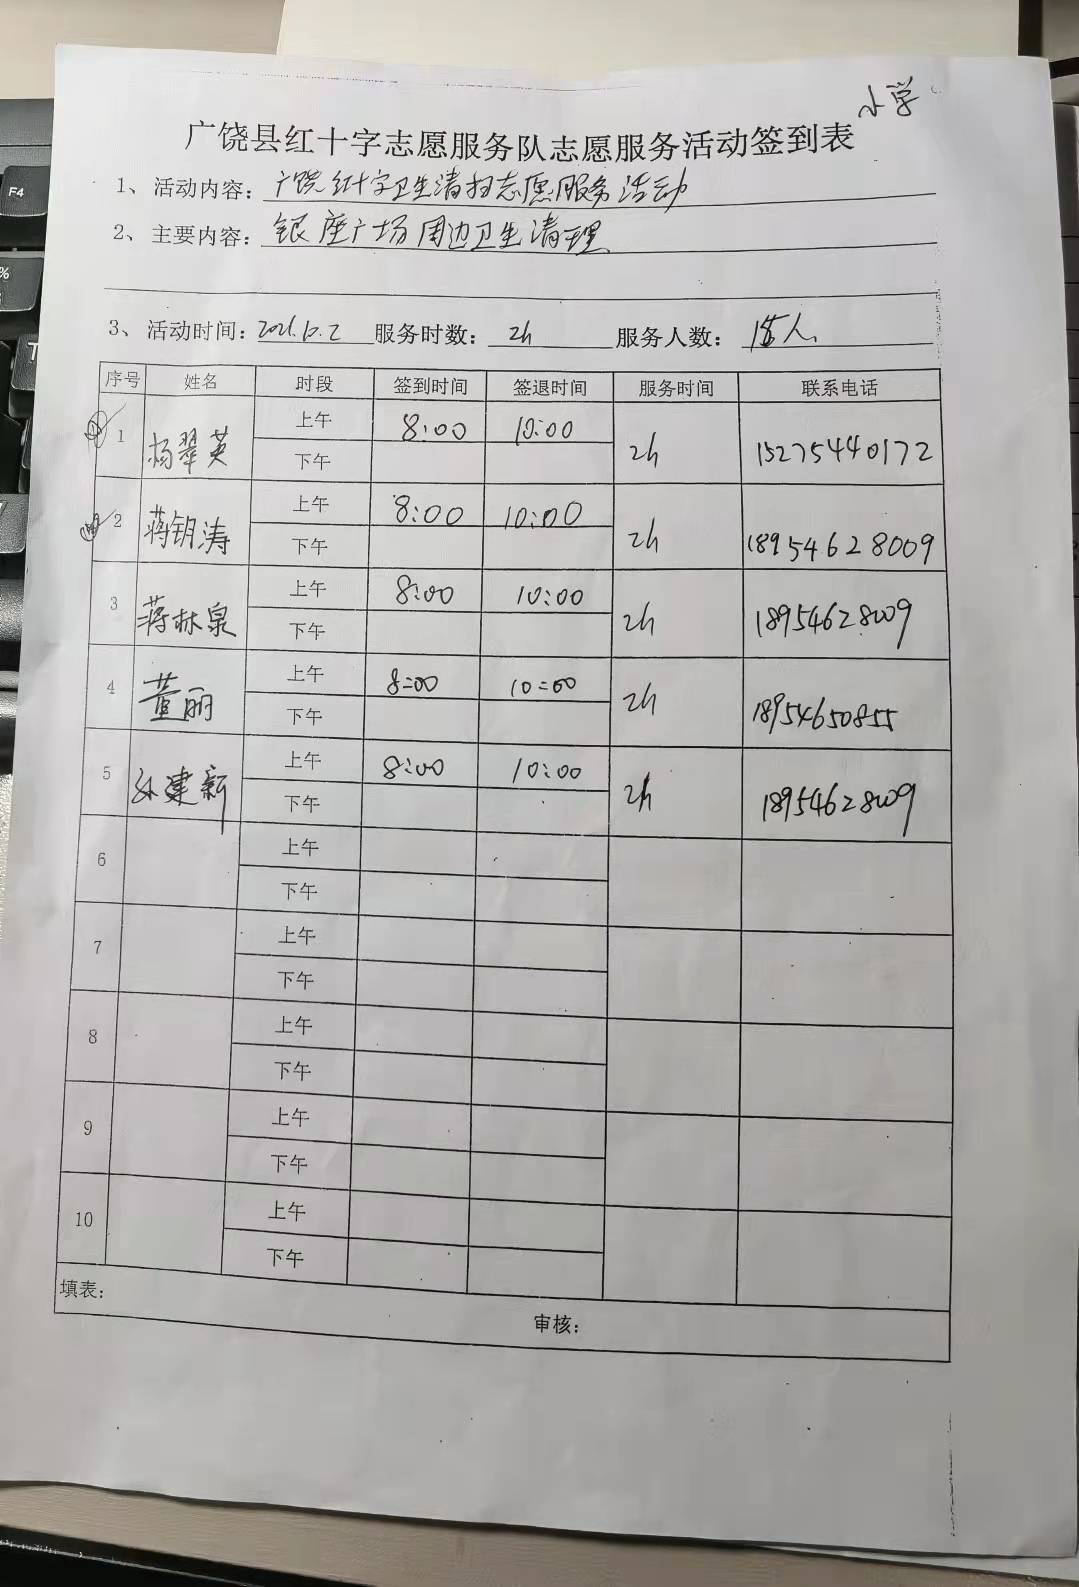 小学
广饶县红十字志愿服务队志愿服务活动签到表
1、活动内容：广饶红十字卫生清扫志愿服务活动
2、主要内容：银座广场周边卫生清理
3、活动时间：2021.12.2 服务时数：2h 服务人数：人
序号 姓名 时段 签到时间 签退时间 服务时间 联系电话
1 杨翠英 上午 8:00 10:00 2h 15275440172
下午
2 蒋钥涛 上午 8:00 10:00 2h 18954628009
下午
3 蒋林泉 上午 8:00 10:00 2h 18954628009
下午
4 董丽 上午 8:00 10:00 2h 18954650855
下午
5 孙建新 上午 8:00 10:00 2h 18954628009
下午
6 上午
下午
7 上午
下午
8 上午
下午
9 上午
下午
10 上午
下午
填表：
审核：
F4
%
T